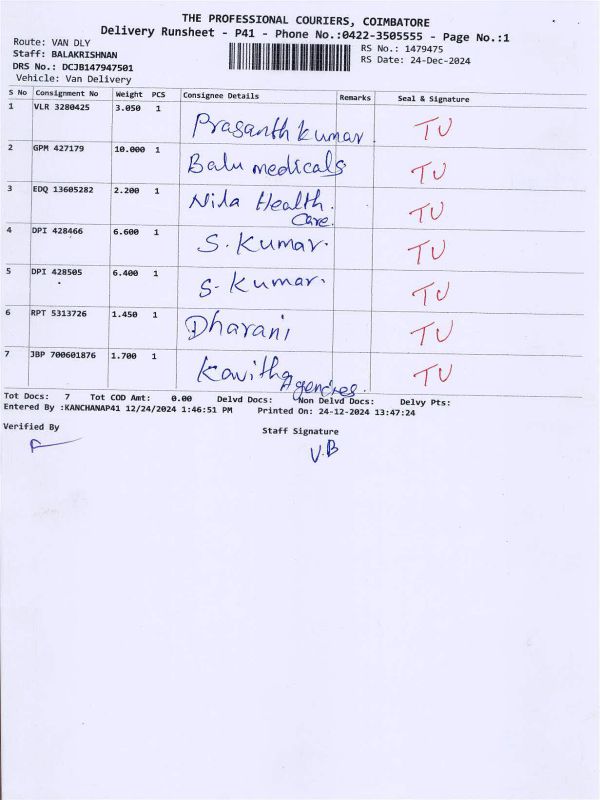 THE PROFESSIONAL COURIERS, COIMBATORE
Delivery Runsheet - P41 - Phone No.:0422-3505555 - Page No.:1
Route: VAN DLY
Staff: BALAKRISHNAN
DRS No.: DCJB147947501
Vehicle: Van Delivery
RS No.: 1479475
RS Date: 24-Dec-2024
S No Consignment No Weight PCS Consignee Details Remarks Seal & Signature
1 VLR 3280425 3.050 1 Prasanth kumar TU
2 GPM 427179 10.000 1 Balu medicals TU
3 EDQ 13605282 2.200 1 Nila Health. TU
Care.
4 DPI 428466 6.600 1 S. Kumar. TU
5 DPI 428505 6.400 1 S. Kumar. TU
6 RPT 5313726 1.450 1 Dharani TU
7 JBP 700601876 1.700 1 Kavitha TU
Agencies.
Tot Docs: 7 Tot COD Amt: 0.00 Delvd Docs: Non Delvd Docs: Delvy Pts:
Entered By :KANCHANAP41 12/24/2024 1:46:51 PM Printed On: 24-12-2024 13:47:24
Verified By
Staff Signature
V.B